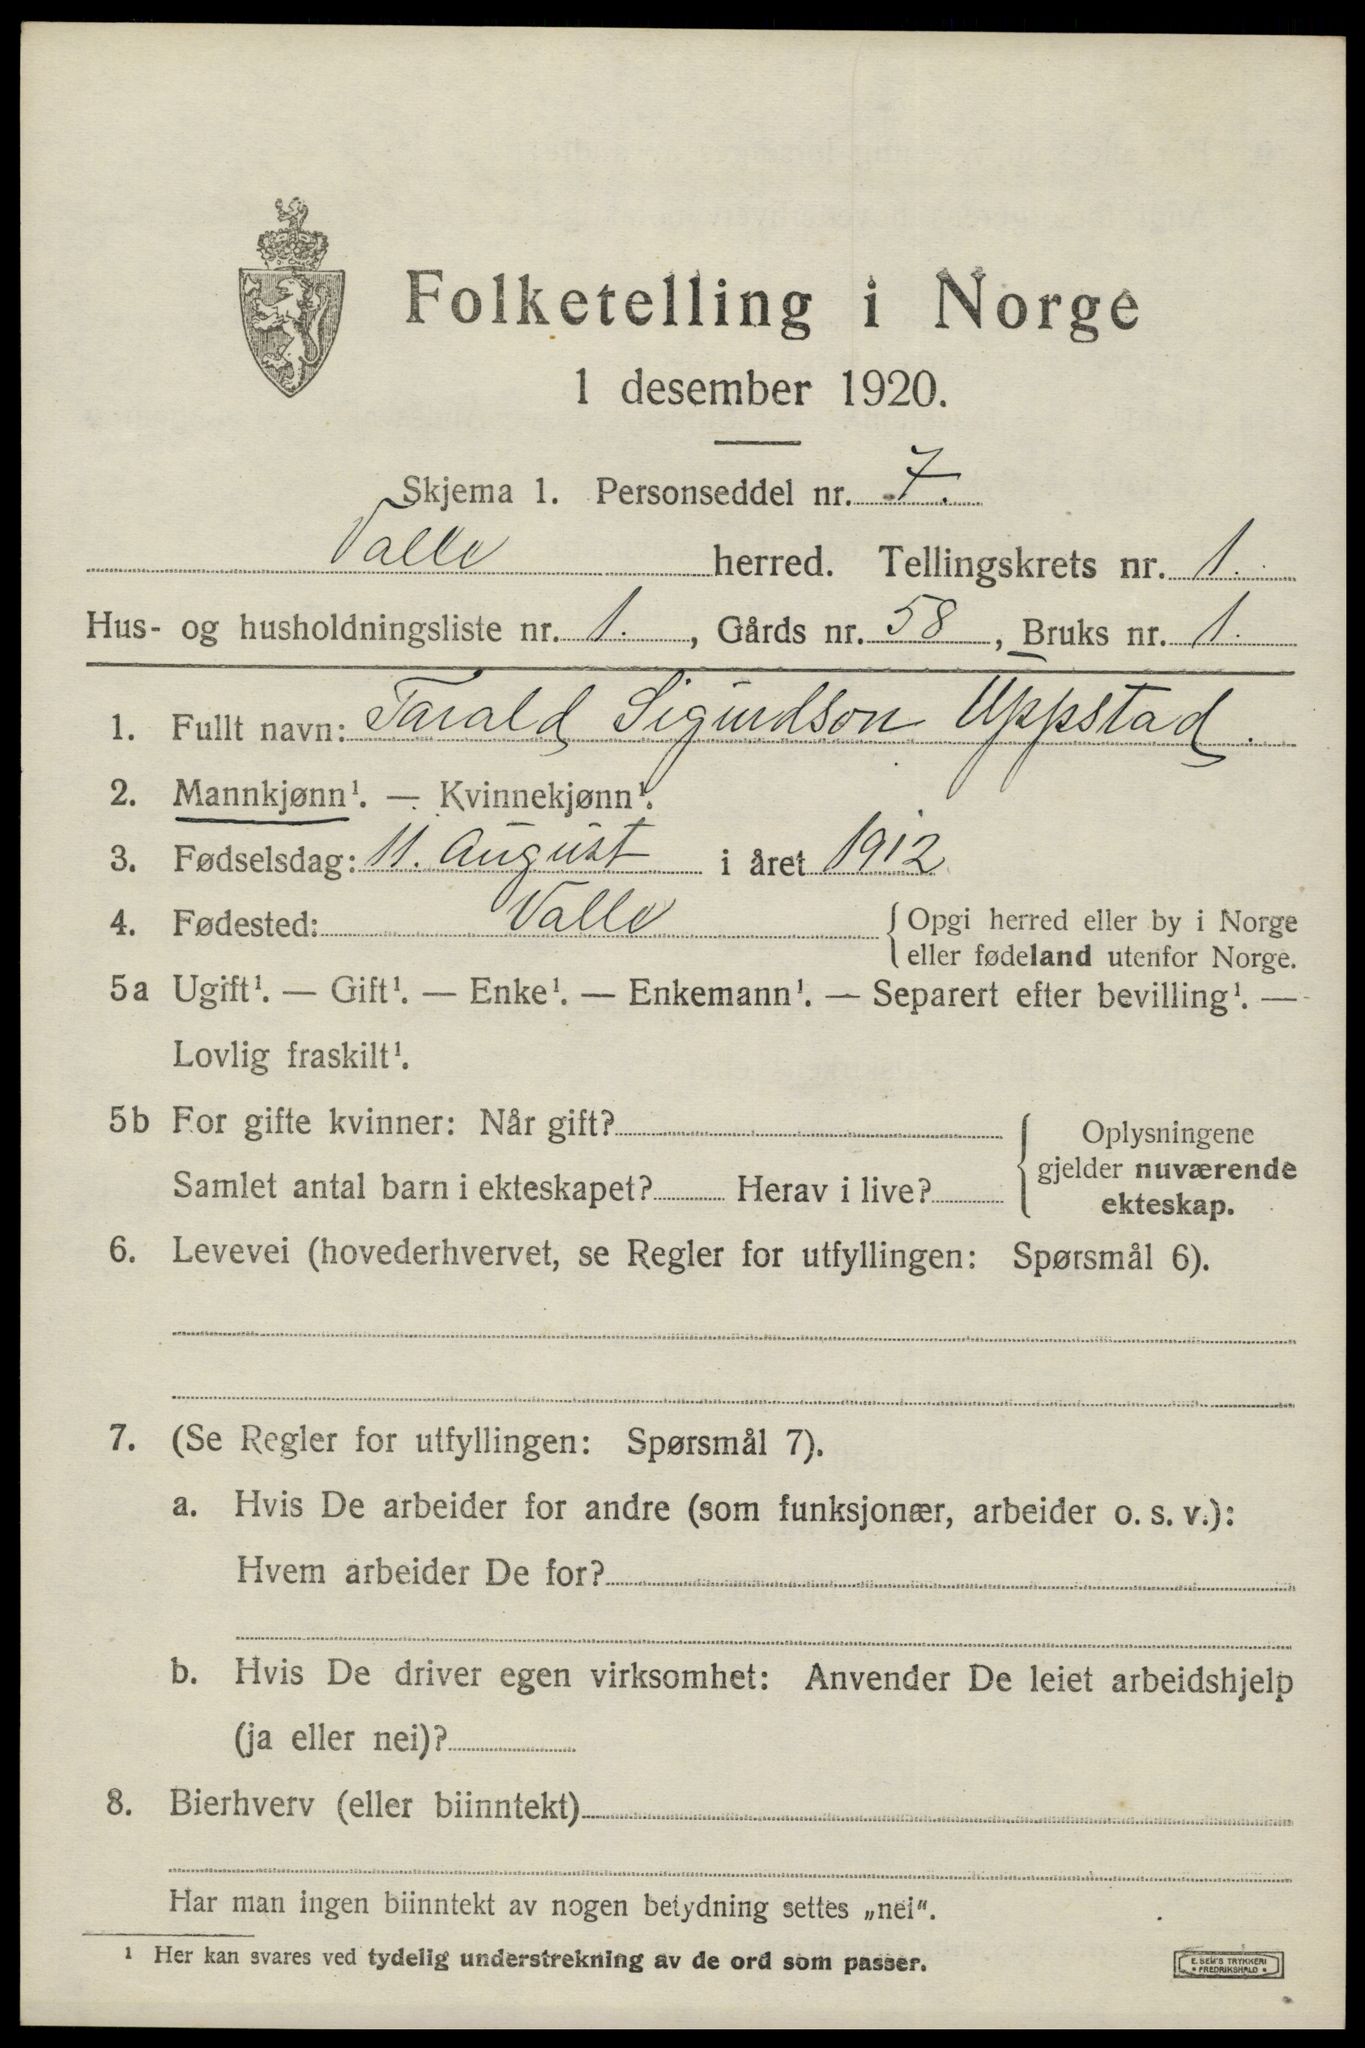 Folketelling i Norge
1 desember 1920.
Skjema 1. Personseddel nr. 7.
Valle herred. Tellingskrets nr. 1.
Hus- og husholdningsliste nr. 1., Gårds nr. 58, Bruks nr. 1.
1. Fullt navn: Tarald Sigurdson Uppstad.
2. Mannkjønn¹. — Kvinnekjønn¹.
3. Fødselsdag: 11. August i året 1912
4. Fødested: Valle {Opgi herred eller by i Norge
eller fødeland utenfor Norge.
5a Ugift¹. — Gift¹. — Enke¹. — Enkemann¹. — Separert efter bevilling¹. —
Lovlig fraskilt¹.
5b For gifte kvinner: Når gift?
Samlet antal barn i ekteskapet? Herav i live?
{Oplysningene
gjelder nuværende
ekteskap.
6. Levevei (hovederhvervet, se Regler for utfyllingen: Spørsmål 6).
7. (Se Regler for utfyllingen: Spørsmål 7).
a. Hvis De arbeider for andre (som funksjonær, arbeider o. s. v.):
Hvem arbeider De for?
b. Hvis De driver egen virksomhet: Anvender De leiet arbeidshjelp
(ja eller nei)?
8. Bierhverv (eller biinntekt)
Har man ingen biinntekt av nogen betydning settes „nei“.
¹ Her kan svares ved tydelig understrekning av de ord som passer.
E. SEM'S TRYKKERI
FREDRIKSHALD